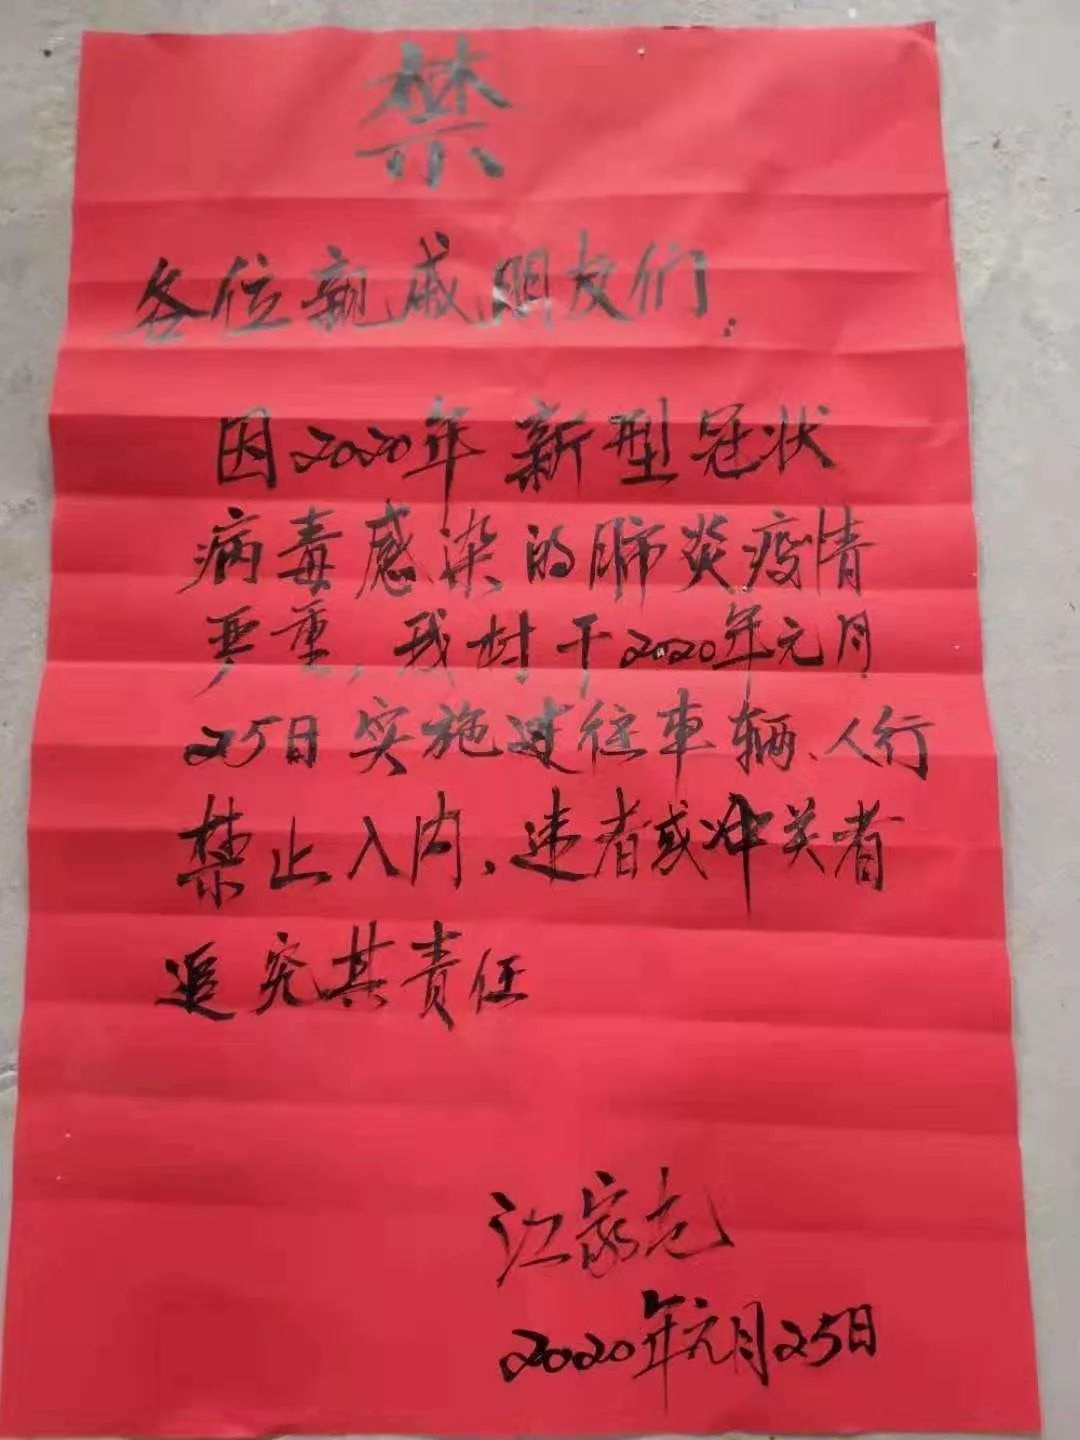 禁
各位亲戚朋友们：
因2020年新型冠状
病毒感染的肺炎疫情
严重，我村于2020年元月
25日实施过往车辆、人行
禁止入内，违者或冲关者
追究其责任
江家
2020年元月25日